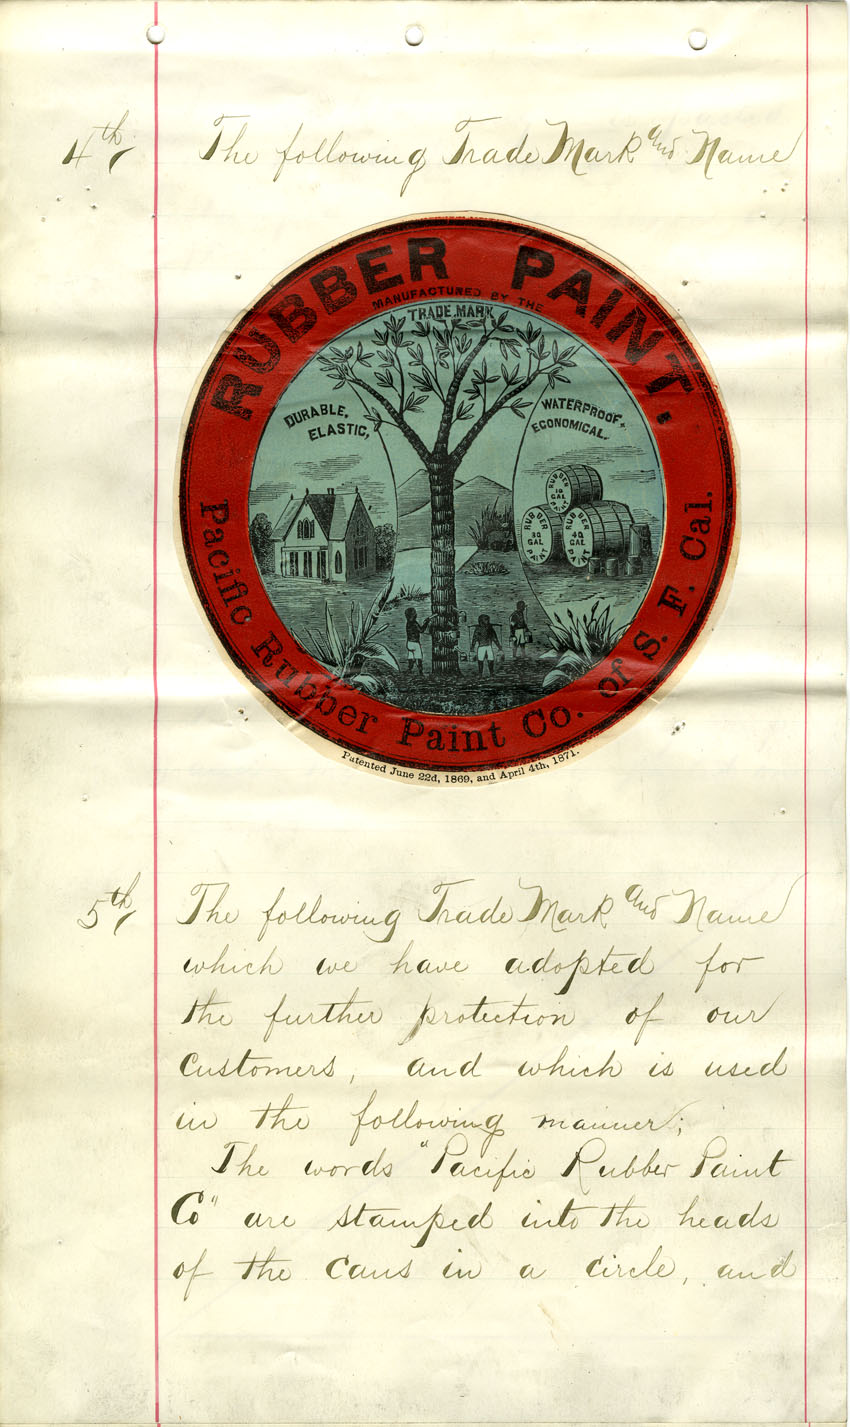 4th/ The following Trade Mark and Name
RUBBER PAINT.
MANUFACTURED BY THE
TRADE MARK
DURABLE,
ELASTIC,
WATERPROOF,
ECONOMICAL.
RUBBER
10
GAL
PAINT
RUBBER
30
GAL
PAINT
RUBBER
40
GAL
PAINT
Pacific Rubber Paint Co. of S. F. Cal.
Patented June 22d, 1869, and April 4th, 1871.
5th/ The following Trade Mark and Name
which we have adopted for
the further protection of our
customers, and which is used
in the following manner;
The words "Pacific Rubber Paint
Co" are stamped into the heads
of the cans in a circle, and